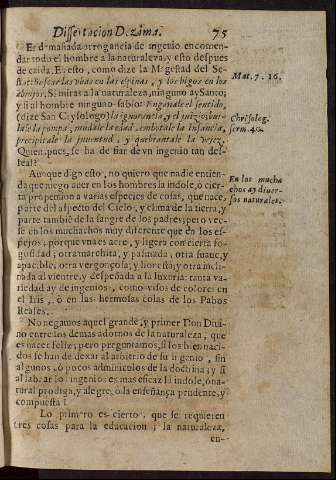 Dissertacion Dezima. 75
Es demasiada arrogancia de ingenio encomen-
dar todo el hombre a la naturaleza, y esto despues
de caida. Es esto, como dize la Magestad del Se-
ñor: buscar las vbas en las espinas, y los higos en los
abrojos. Si miras a la naturaleza, ninguno ay Santo,
y si al hombre ninguno sabio: Engañale el sentido,
(dize San Crysologo) la ignorancia, y el juizio, bur-
lale la pompa, mudale la edad, embotale la infancia,
precipitale la juventud, y quebrantale la vejez.
Quien, pues, se ha de fiar de vn ingenio tan des-
leal?
Mat. 7. 16.
Chrysolog.
serm. 40.
Aunque digo esto, no quiero que nadie entien-
da que niego auer en los hombres la indole, ò cier-
ta propension a varias especies de cosas, que nace
parte del aspecto del Cielo, y clima de la tierra, y
parte tambiē de la sangre de los padres; pero vec-
se en los muchachos muy diferente que en los es-
pejos, porque vna es acre, y ligera con cierta fo-
gosidad; otra marchita, y pasmada, otra suaue, y
apacible, otra vergonçosa, y honesta; y otra incli-
nada al vientre, y despeñada a la luxuria: tanta va-
riedad ay de ingenios, como visos de colores en
el Iris, ò en las hermosas colas de los Pabos
Reales.
En los mucha
chos ay diuer-
sos naturales.
No negamos aquel grande, y primer Don Diui-
no entre los demas adornos de la naturaleza, que
es nacer feliz, pero preguntamos, si los bien naci-
dos se han de dexar al arbitrio de su ingenio, sin
algunos, ò pocos adminiculos de la doctrina; y si
al labrar los ingenios es mas eficaz la indole, ò na-
tural prodiga, y alegre, ò la enseñança prudente, y
compuesta?
Lo primero es cierto, que se requieren
tres cosas para la educacion; la naturaleza,
en-